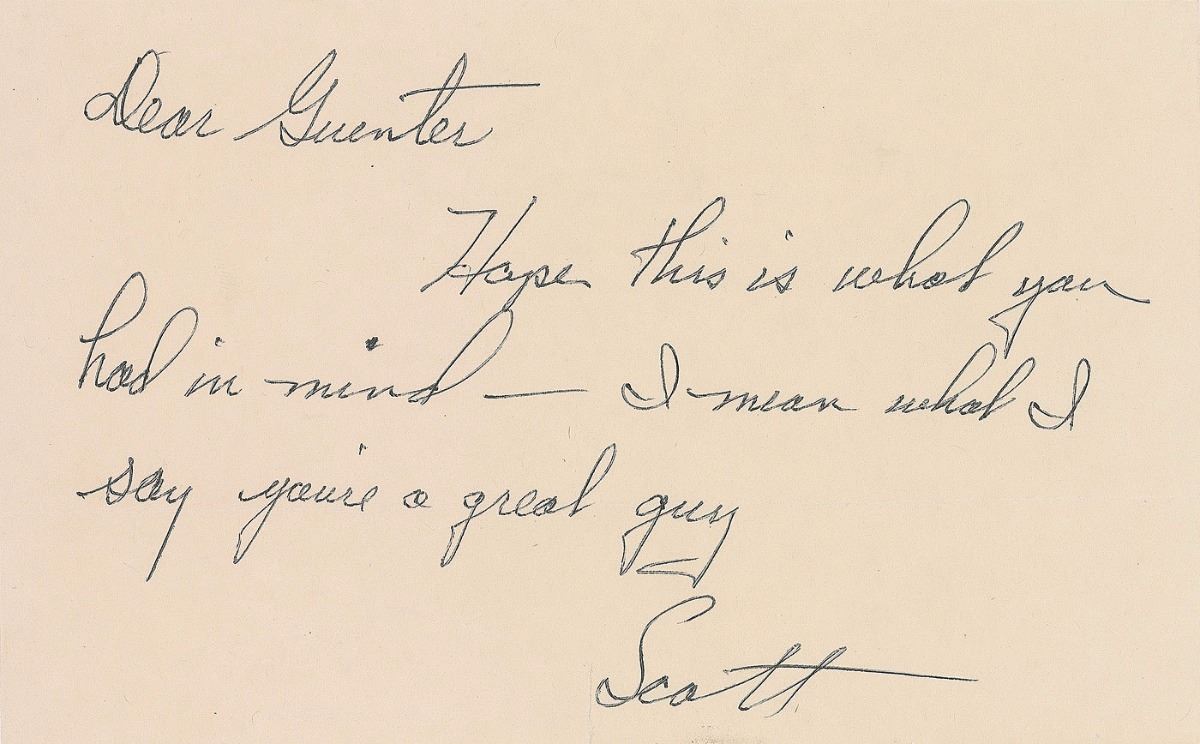 Dear Guenter
Hope this is what you
had in mind — I mean what I
say you're a great guy
Scott